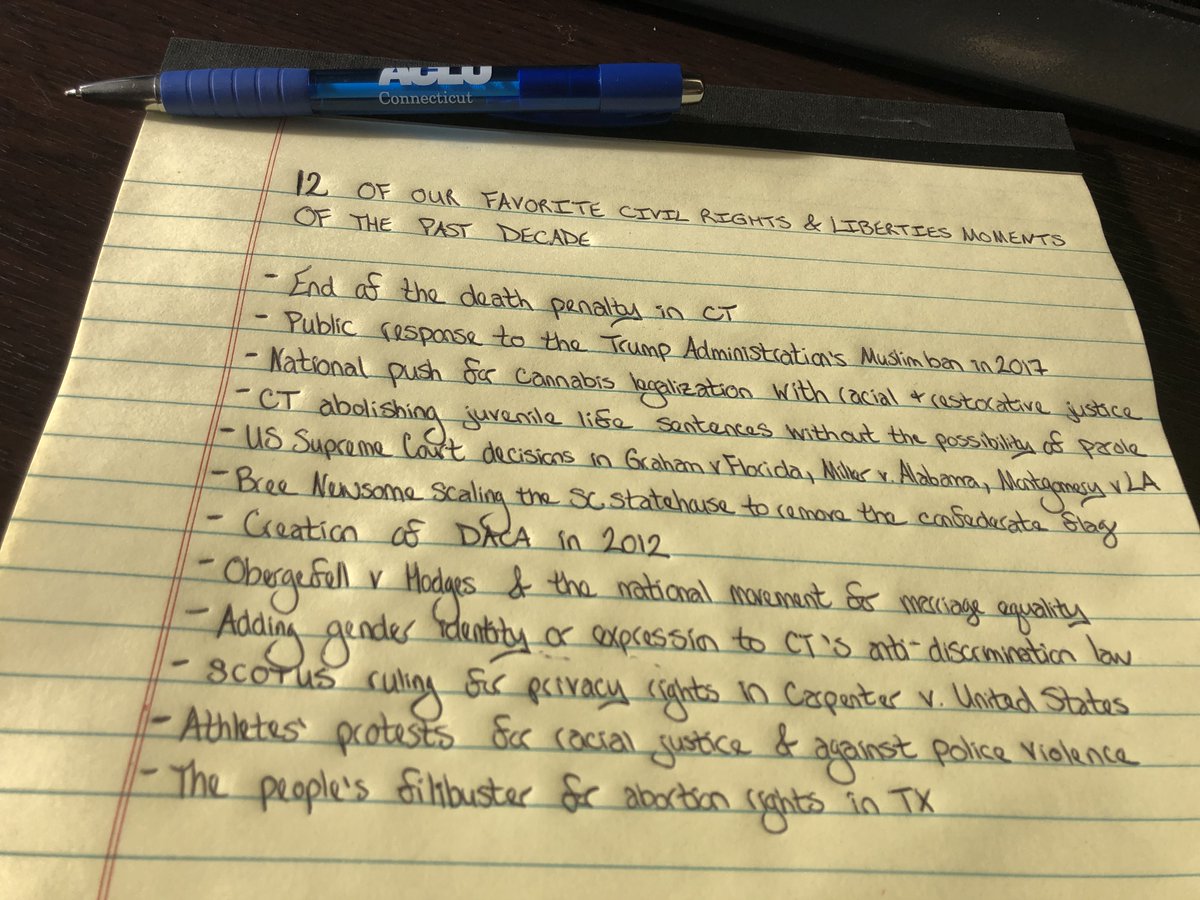 ACLU
Connecticut
12 OF OUR FAVORITE CIVIL RIGHTS & LIBERTIES MOMENTS
OF THE PAST DECADE
- End of the death penalty in CT
- Public response to the Trump Administration's Muslim ban in 2017
- National push for cannabis legalization with racial + restorative justice
- CT abolishing juvenile life sentences without the possibility of parole
- US Supreme Court decisions in Graham v Florida, Miller v. Alabama, Montgomery v LA
- Bree Newsome scaling the SC statehouse to remove the confederate flag
- Creation of DACA in 2012
- Obergefell v Hodges & the national movement for marriage equality
- Adding gender identity or expression to CT's anti-discrimination law
- SCOTUS ruling for privacy rights in Carpenter v. United States
- Athletes' protests for racial justice & against police violence
- The people's filibuster for abortion rights in TX